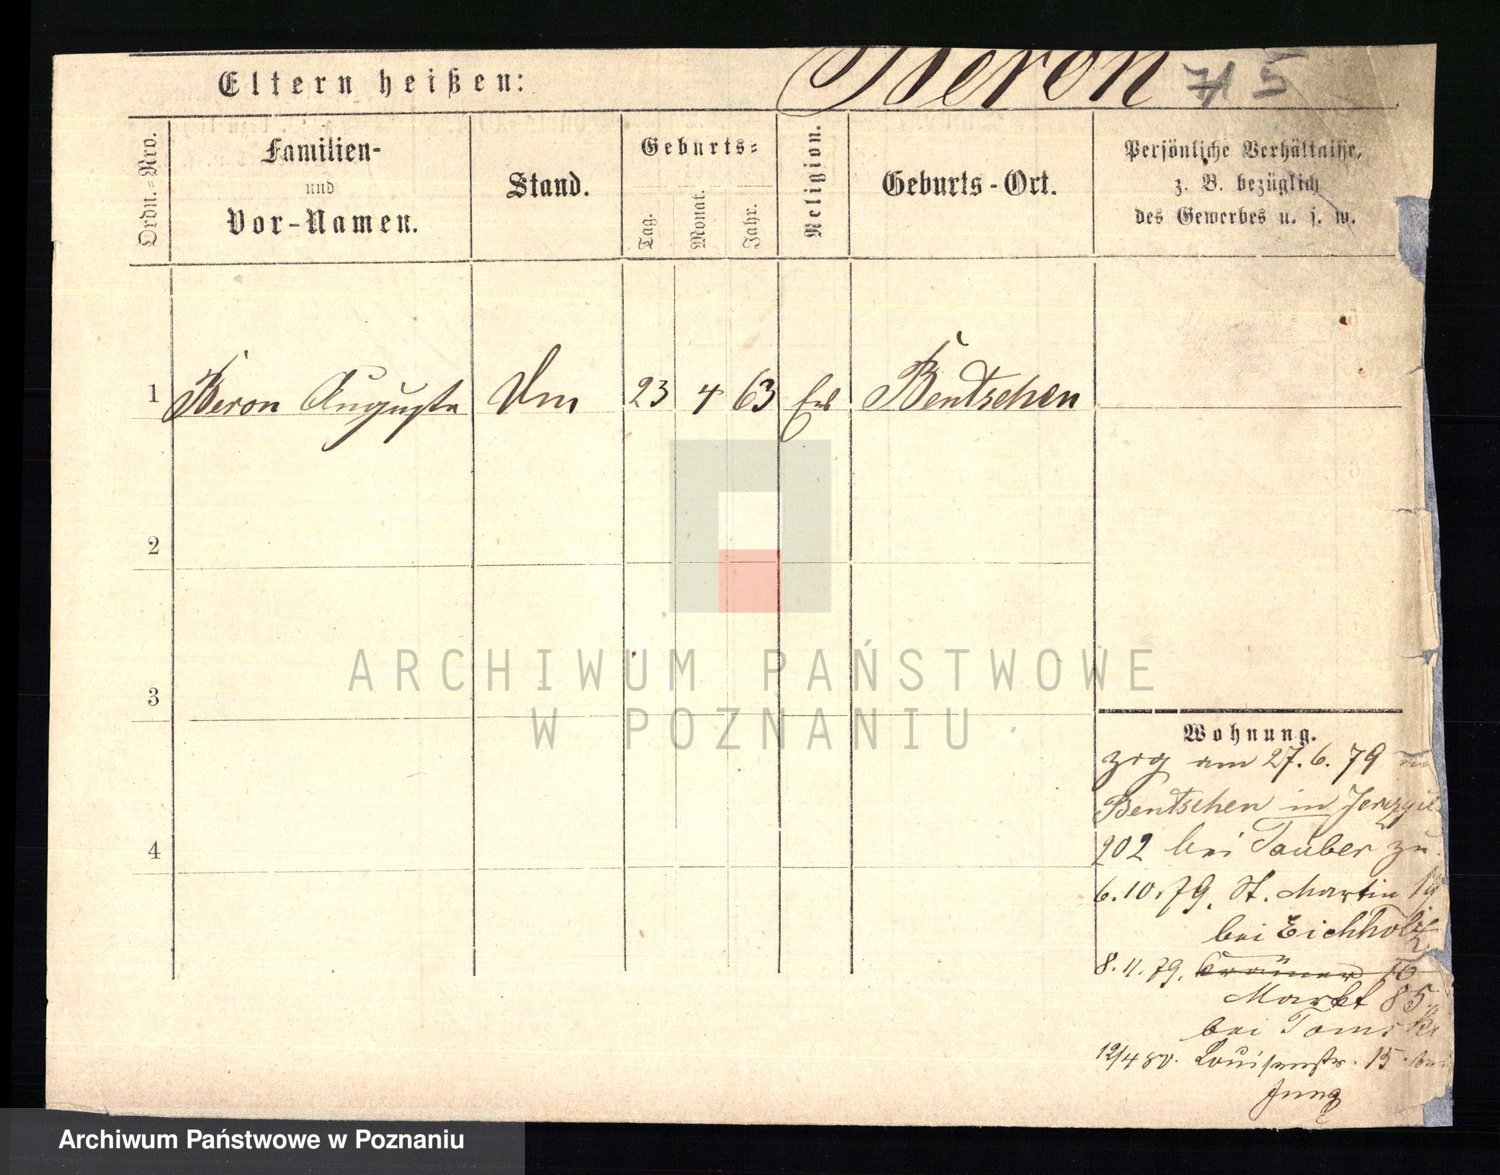 Eltern heißen:
Beron
Ordn.=Nro.
Familien-
und
Vor-Namen.
Stand.
Geburts=
Tag.
Monat.
Jahr.
Religion.
Geburts-Ort.
Persönliche Verhältnisse,
z. B. bezüglich
des Gewerbes u. s. w.
1 Beron Auguste 23 4 63 Bentschen
2
3
4
ARCHIWUM PAŃSTWOWE
W POZNANIU
Wohnung.
zrg am 27.6.79
Bentschen in
202 bei Tauber zu
6.10.79. St. Martin
bei Eichholz
8.11.79. 10
Markt 85.
bei Tomski
12/4 80. Louisenstr. 15.
Jung
Archiwum Państwowe w Poznaniu